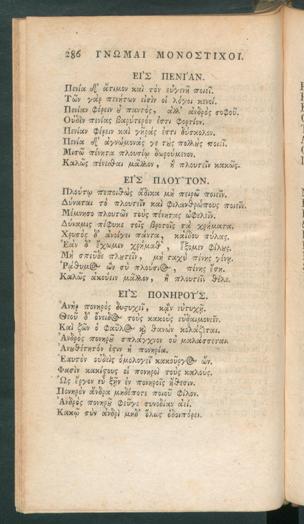 286 ΓΝΩΜΑΙ ΜΟΝΟΣΤΙΧΟΙ.
ΕΙΣ ΠΕΝΙΑΝ.
Πενία δ' ἄτιμον καὶ τὸν εὐγενῆ ποιεῖ.
Τῶν γὰρ πενήτων εἰσὶν οἱ λόγοι κενοί.
Πενίαν φέρειν οὐ παντὸς, ἀλλ' ἀνδρὸς σοφοῦ.
Οὐδὲν πενίας βαρύτερόν ἐστι φορτίον.
Πενίαν φέρειν καὶ γῆράς ἐστι δύσκολον.
Πενία δ' ἀγνώμονάς γε τοὺς πολλοὺς ποιεῖ.
Μισῶ πένητα πλουσίῳ δωρούμενον.
Καλῶς πένεσθαι μᾶλλον, ἢ πλουτεῖν κακῶς.
ΕΙΣ ΠΛΟΥΤΟΝ.
Πλούτῳ πεποιθὼς ἄδικα μὴ πειρῶ ποιεῖν.
Δύναται τὸ πλουτεῖν καὶ φιλανθρώπους ποιεῖν.
Μέμνησο πλουτῶν τοὺς πένητας ὠφελεῖν.
Δύναμις πέφυκε τοῖς βροτοῖς τὰ χρήματα.
Χρυσὸς δ' ἀνοίγει πάντα, καΐδου πύλας.
Ἐὰν δ' ἔχωμεν χρήμαθ', ἕξομεν φίλους.
Μὴ σπεῦδε πλουτεῖν, μὴ ταχὺ πένης γένῃ.
Ῥάθυμος ὢν σὺ πλούσιος, πένης ἔσῃ.
Καλῶς ἀκούειν μᾶλλον, ἢ πλουτεῖν θέλε.
ΕΙΣ ΠΟΝΗΡΟΥΣ.
Ἀνὴρ πονηρὸς δυστυχεῖ, κἂν εὐτυχῇ.
Θεοῦ δ' ὄνειδος τοὺς κακοὺς εὐδαιμονεῖν.
Καὶ ζῶν ὁ φαῦλος καὶ θανὼν κολάζεται.
Ἀνδρὸς πονηροῦ σπλάγχνον οὐ μαλάσσεται.
Ἀνωθέτητόν ἐστιν ἡ πονηρία.
Ἑαυτὸν οὐδεὶς ὁμολογεῖ κακοῦργος ὤν.
Φασὶν κακίστους οἱ πονηροὶ τοὺς καλούς.
Ὡς ἔργον εὖ ζῆν ἐν πονηροῖς ἤθεσιν.
Πονηρὸν ἄνδρα μηδέποτε ποιοῦ φίλον.
Ἀνδρὸς πονηροῦ φεῦγε συνοδίαν ἀεί.
Κακῷ σὺν ἀνδρὶ μηδ' ὅλως ὁδοιπόρει.